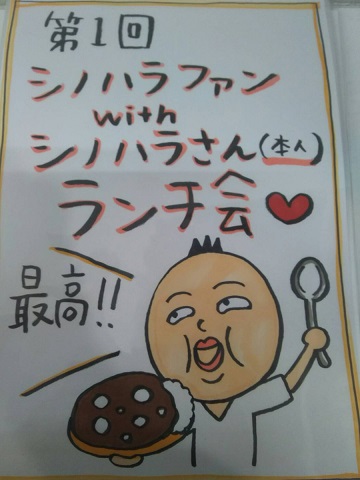 第1回
シノハラファン
with
シノハラさん(本人)
ランチ会♥
最高!!